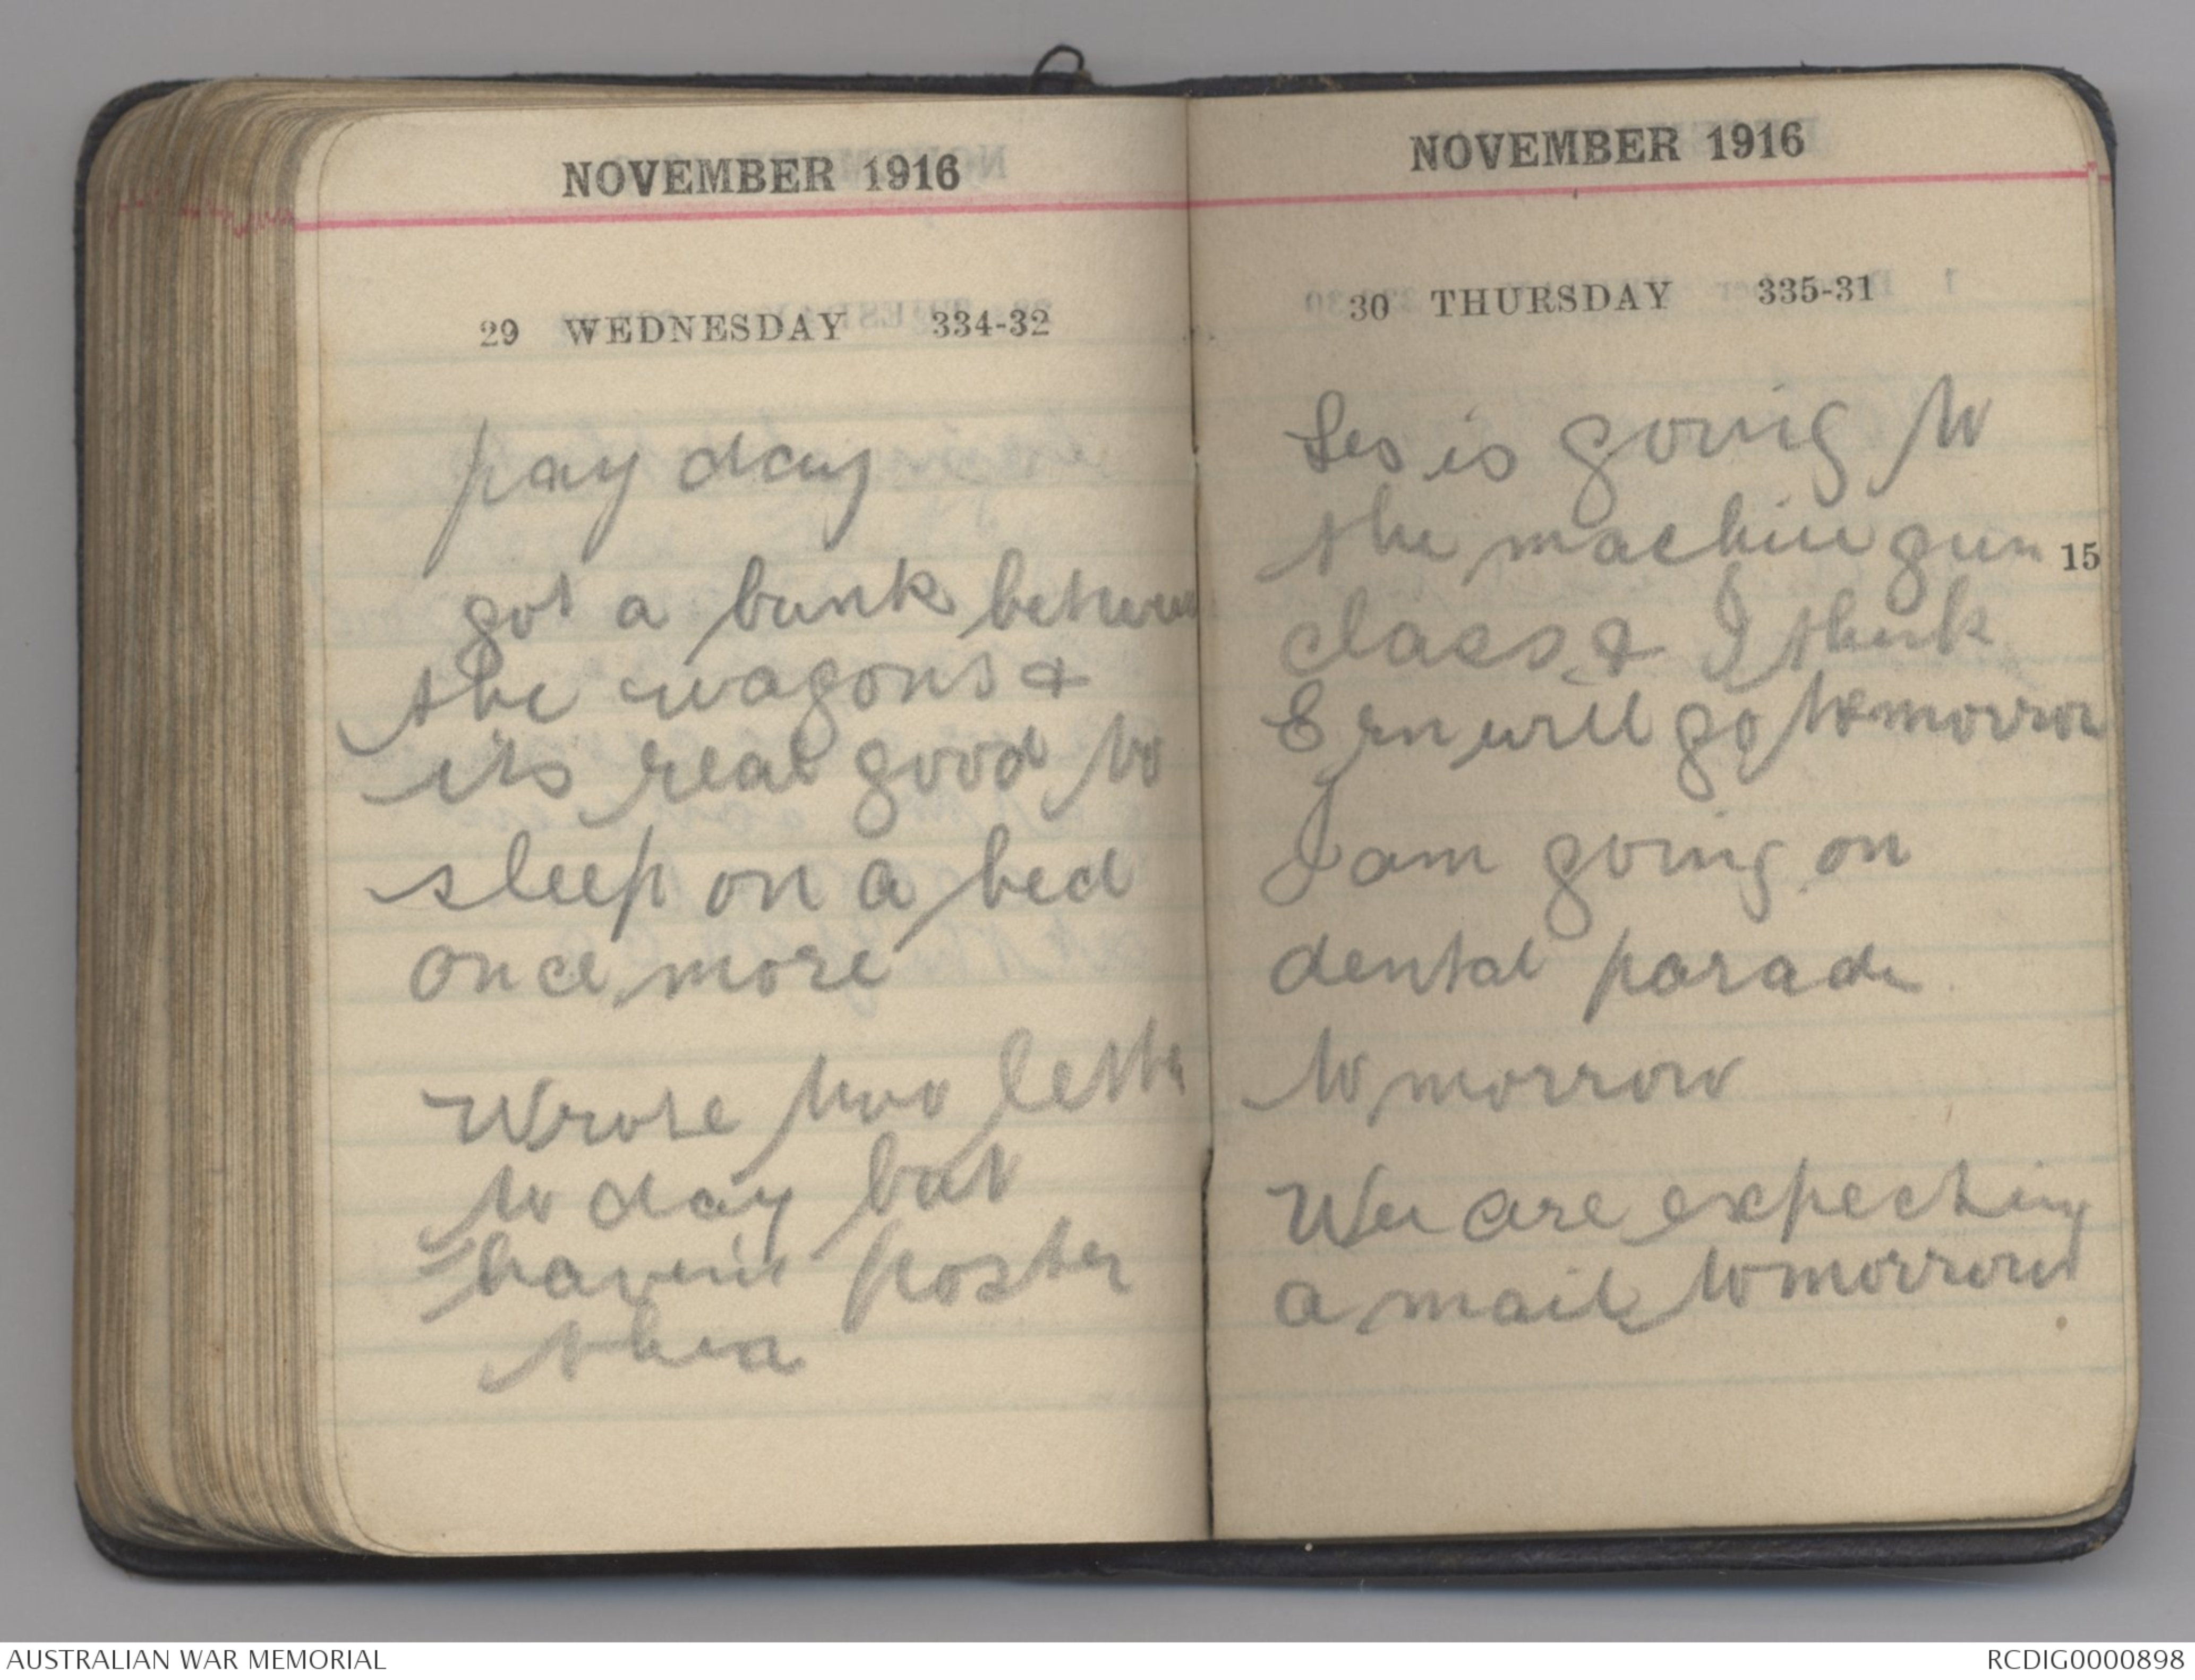 NOVEMBER 1916
29 WEDNESDAY 334-32
pay day
got a bunk between
the wagons &
its real good to
sleep on a bed
once more
Wrote two
to day but
haven't
NOVEMBER 1916
30 THURSDAY 335-31
Les is going to
the machine gun
15
class & I think
Ern will go tomorrow
I am going on
dental parade
tomorrow
We are expecting
a mail tomorrow
.
AUSTRALIAN WAR MEMORIAL
RCDIG0000898